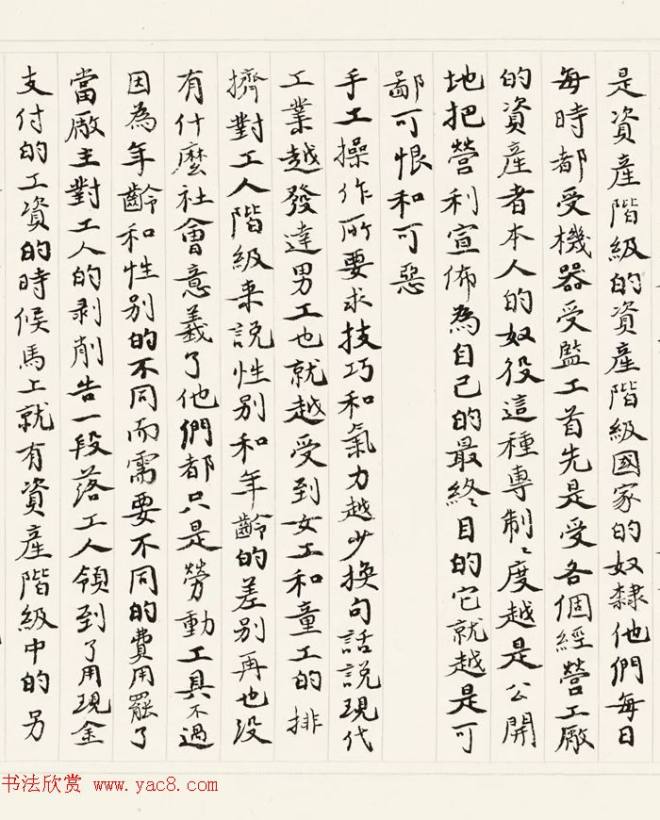 是資產階級的資產階級國家的奴隸他們每日
每時都受機器受監工首先是受各個經營工廠
的資產者本人的奴役這種專制々度越是公開
地把營利宣佈為自己的最終目的它就越是可
鄙可恨和可惡
手工操作所要求技巧和氣力越少換句話說現代
工業越發達男工也就越受到女工和童工的排
擠對工人階級来說性別和年齡的差別再也沒
有什麼社會意義了他們都只是勞動工具不過
因為年齡和性別的不同而需要不同的費用罷了
當廠主對工人的剥削告一段落工人領到了用現金
支付的工資的時候馬上就有資產階級中的另
书法欣赏 www.yac8.com